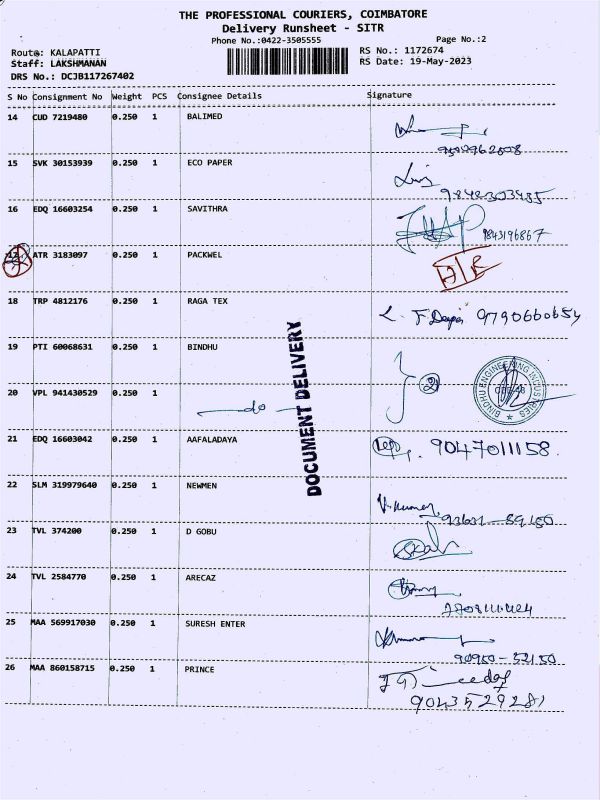 THE PROFESSIONAL COURIERS, COIMBATORE
Delivery Runsheet - SITR
Phone No.:0422-3505555
Page No.:2
Route: KALAPATTI
RS No.: 1172674
Staff: LAKSHMANAN
RS Date: 19-May-2023
DRS No.: DCJB117267402
S No Consignment No Weight PCS Consignee Details Signature
14 CUD 7219480 0.250 1 BALIMED
15 SVK 30153939 0.250 1 ECO PAPER
9842303435
16 EDQ 16603254 0.250 1 SAVITHRA
9843196867
17 ATR 3183097 0.250 1 PACKWEL
18 TRP 4812176 0.250 1 RAGA TEX
9790660654
19 PTI 60068631 0.250 1 BINDHU
2
BINDHU ENGINEERING INDUSTRIES
20 VPL 941430529 0.250 1
do
DOCUMENT DELIVERY
21 EDQ 16603042 0.250 1 AAFALADAYA
9047011158
22 SLM 319979640 0.250 1 NEWMEN
V. Kumar
23 TVL 374200 0.250 1 D GOBU
24 TVL 2584770 0.250 1 ARECAZ
25 MAA 569917030 0.250 1 SURESH ENTER
90950-52150
26 MAA 860158715 0.250 1 PRINCE
9043529281